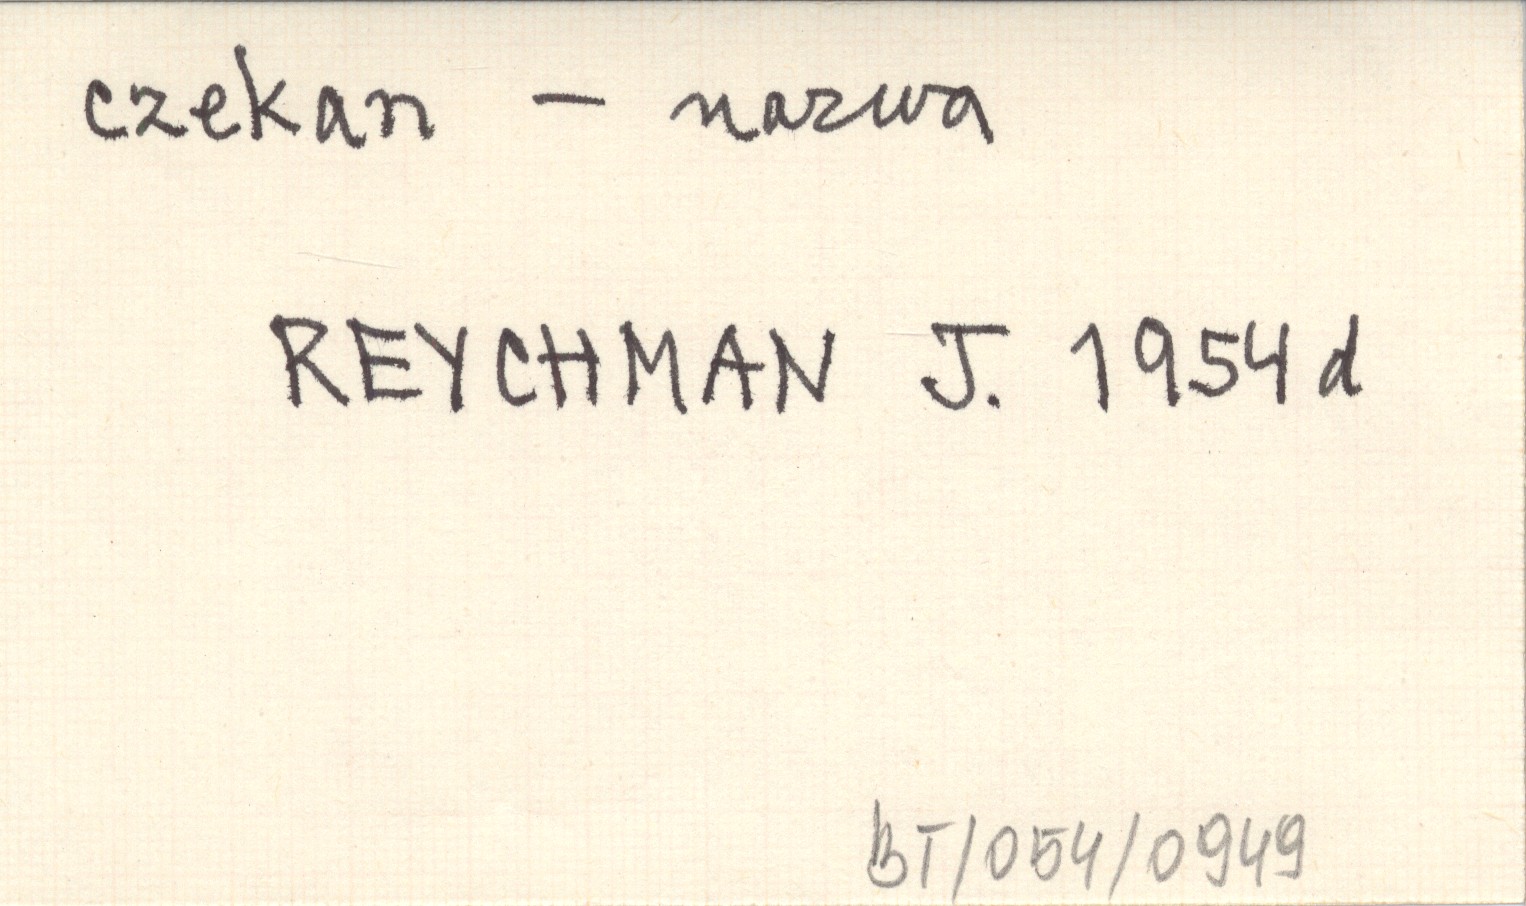 czekan — nazwa
REYCHMAN J. 1954d
BT/054/0949